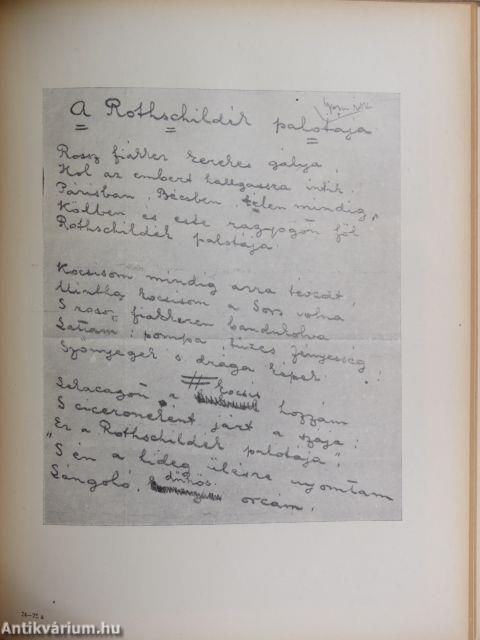 A Rothschildék palotája
Rossz fiakker kerekes gálya,
Hol az embert hallgassra intik:
Párisban, Bécsben, télen mindig,
Ködben és este ragyogón föl
Rothschildék palotája.
Kocsisom mindig arra tévedt,
Mintha kocsisom a Sors volna
S rossz fiakkeren bandukolva
Láttam: pompa, tüzes fényesség,
Szőnyegek s drága képek.
Selacagón a kocsis hozzám
S ciceroneként járt a szája:
"Ez a Rothschildék palotája",
S én a hideg ülésre nyomtam
Lángoló, dühös orcám.
74-75 a
Antikvárium.hu